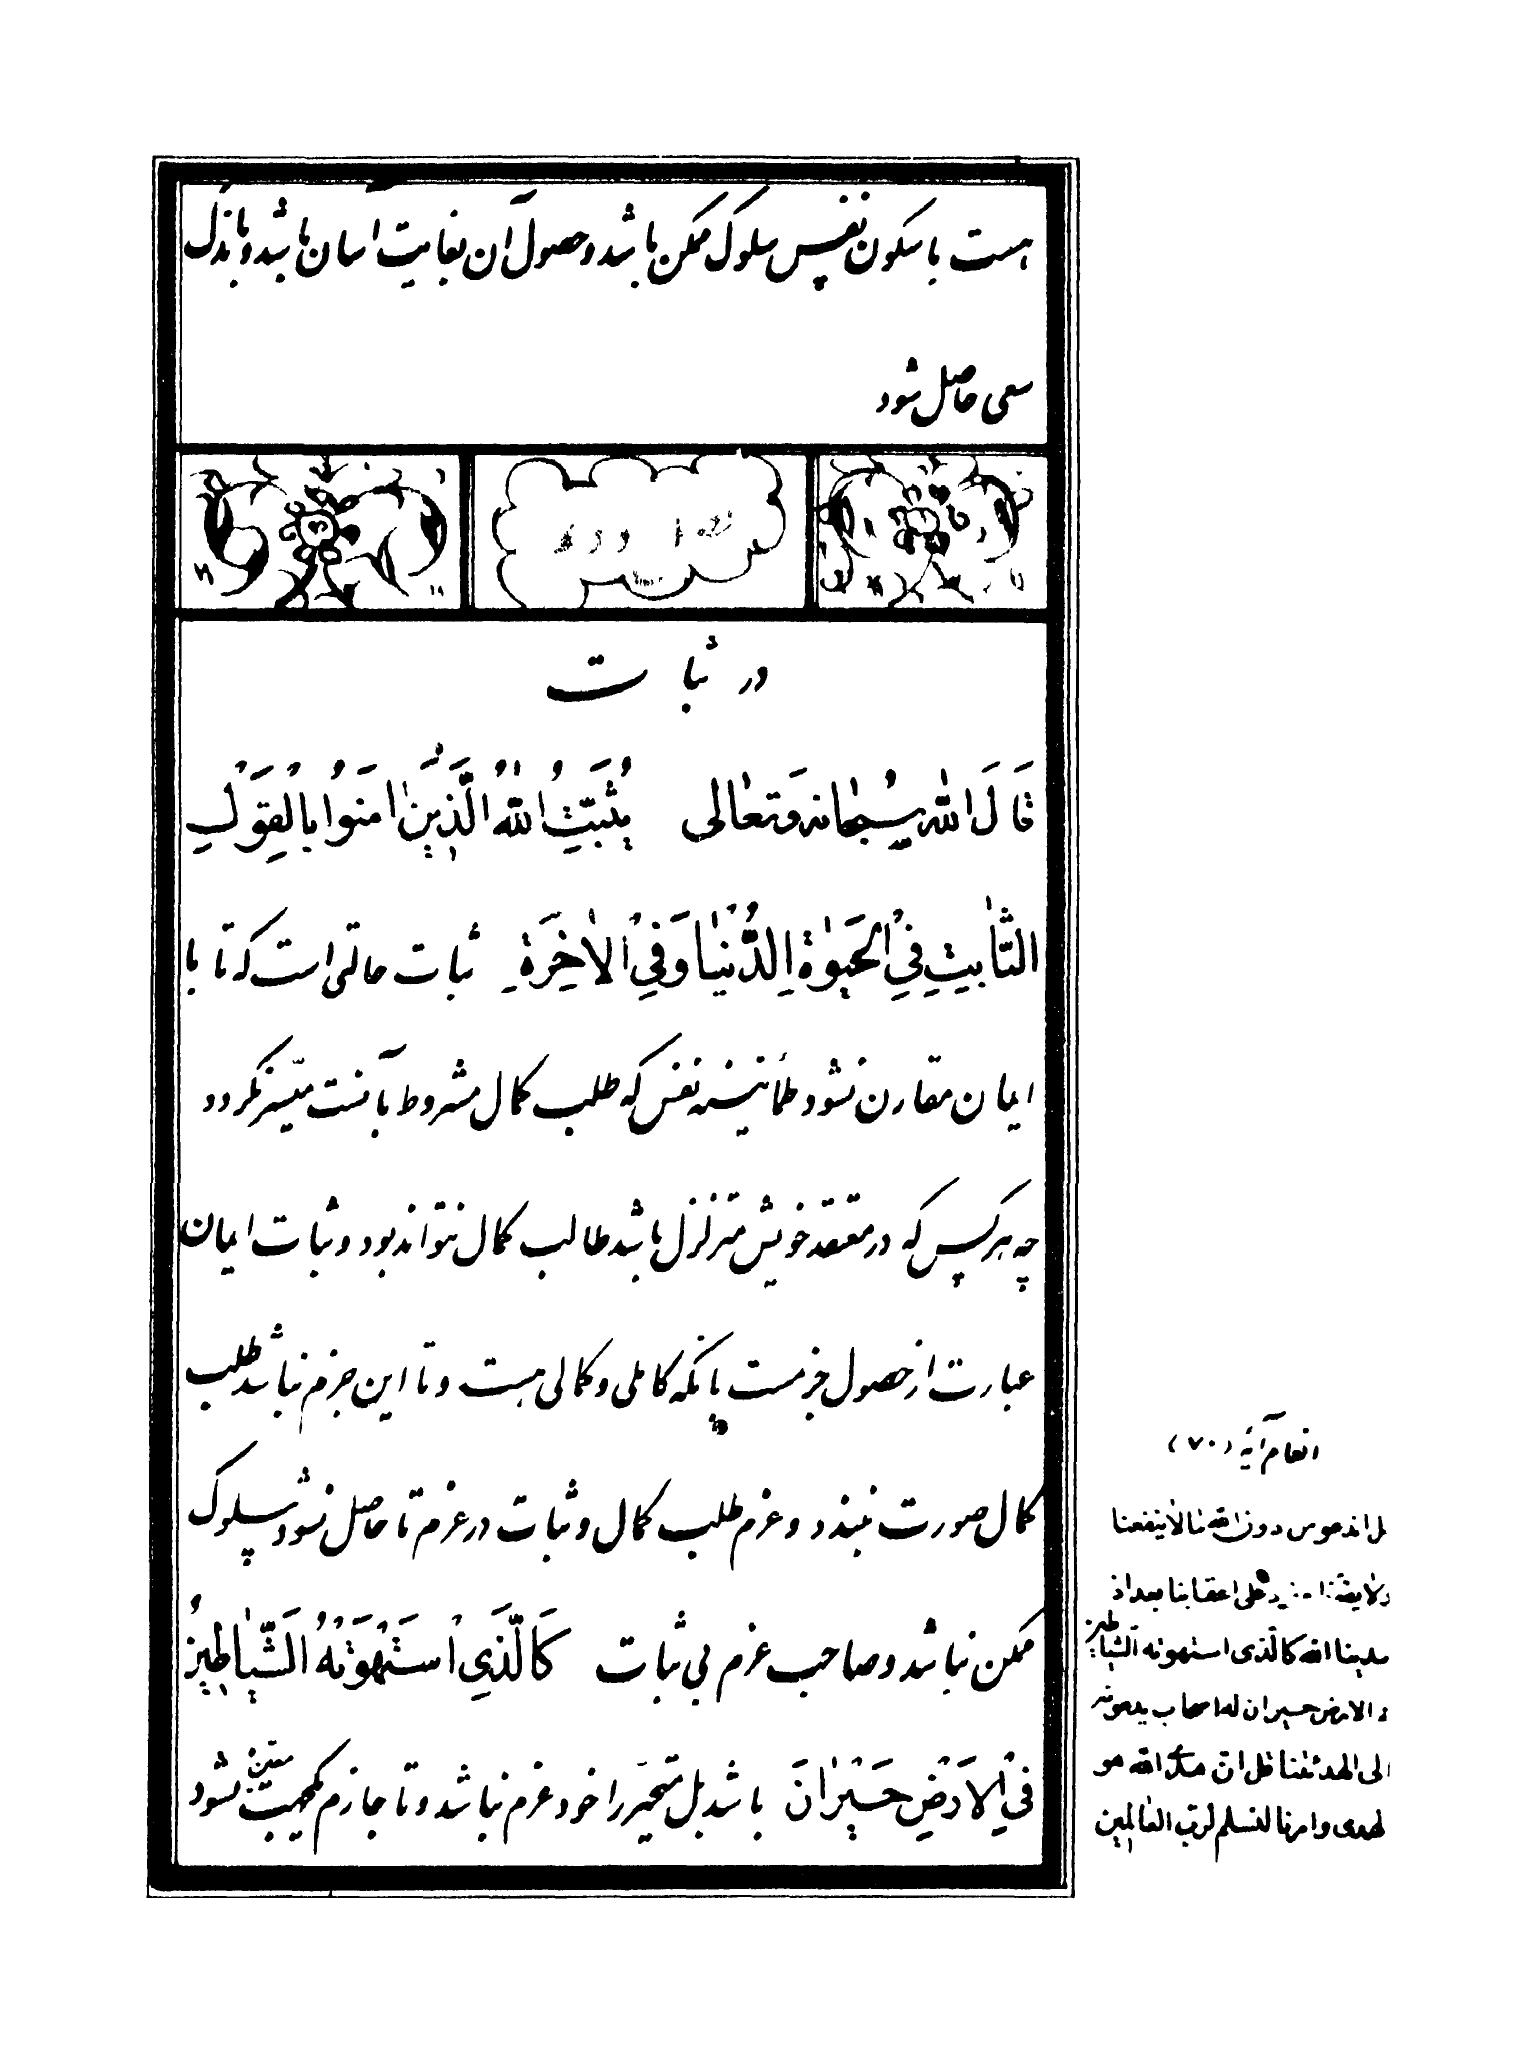 هست با سکون نفس سلوک ممکن باشد و حصول آن بغایت آسان باشد و باندک
سعی حاصل شود
فصل دوم
در ثبات
قَالَ اللهُ سُبْحَانَهُ وَتَعَالى یُثَبِّتُ اللهُ الَّذِینَ اٰمَنُوا بِالْقَوْلِ
الثّٰابِتِ فِی الْحَیٰوةِ الدُّنْیٰا وَفِی الْاٰخِرَةِ ثبات حالتی است که تا با
ایمان مقارن نشود طمأنینه نفس که طلب کمال مشروط بآنست میسّر نگردد
چه هر کس که در معتقد خویش متزلزل باشد طالب کمال نتواند بود و ثبات ایمان
عبارت از حصول جزمست بانکه کاملی و کمالی هست و تا این جزم نباشد طلب
کمال صورت نبندد و عزم طلب کمال و ثبات در عزم تا حاصل نشود سلوک
ممکن نباشد و صاحب عزم بی ثبات کَالَّذِی اسْتَهْوَتْهُ الشَّیٰاطِینُ
فِی الْاَرْضِ حَیْرٰانَ باشد بل متحیّر را خود عزم نباشد و تا جازم بجهت معین نشود
انعام آیه (۷۰)
دون الله ما لا ینفعنا
علی اعقابنا بعد اذ
هدینا الله کالّذی استهوته الشیاطین
الارض حیران له اصحاب یدعونه
الی الهد ئتنا قل ان هدی الله هو
لهدی و امرنا لنسلم لربّ العالمین